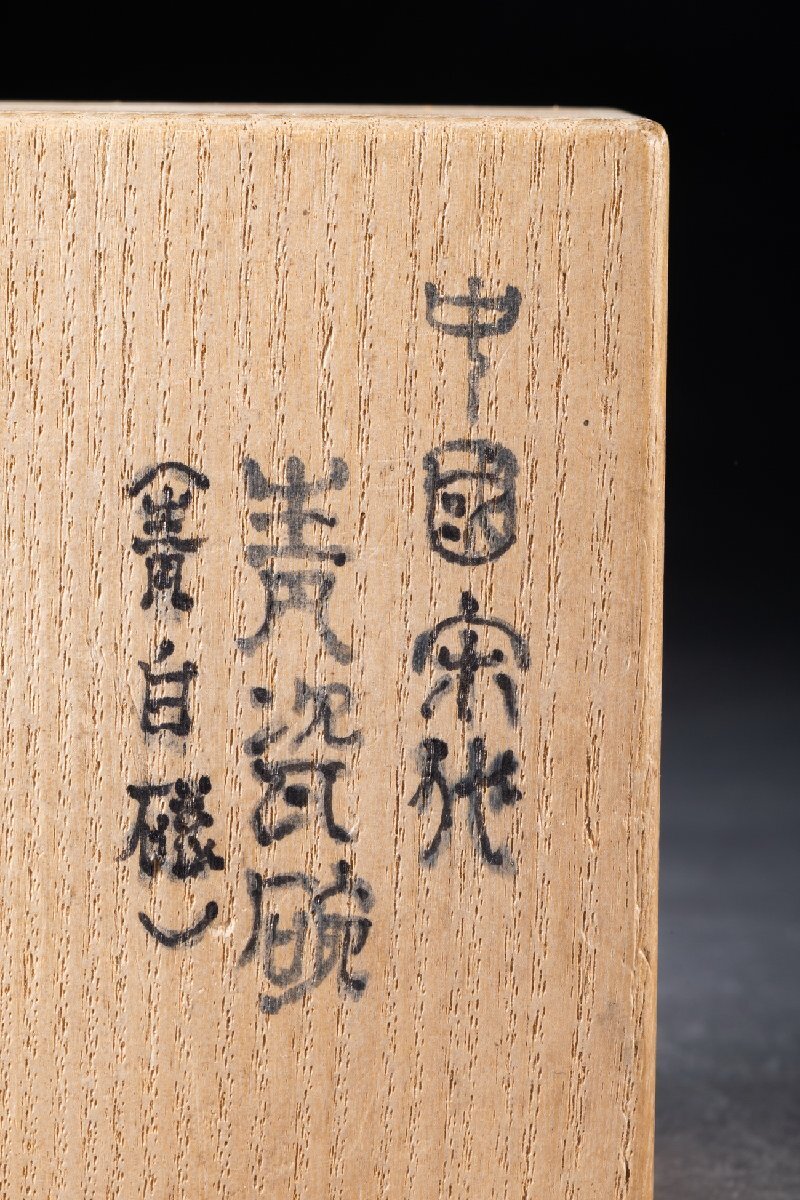 中國宋代
青瓷碗
（青白磁）